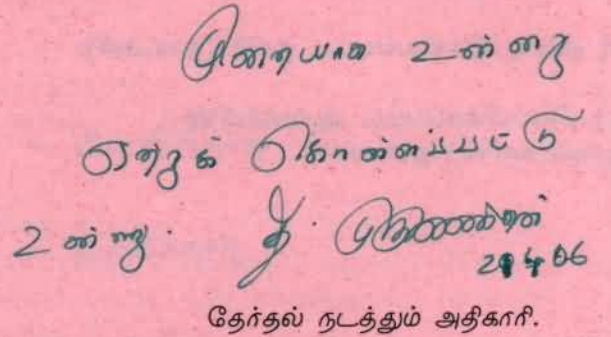 முறையாக உள்ளது
ஏற்றுக் கொள்ளப்பட்டு
உள்ளது.
தேர்தல் நடத்தும் அதிகாரி.